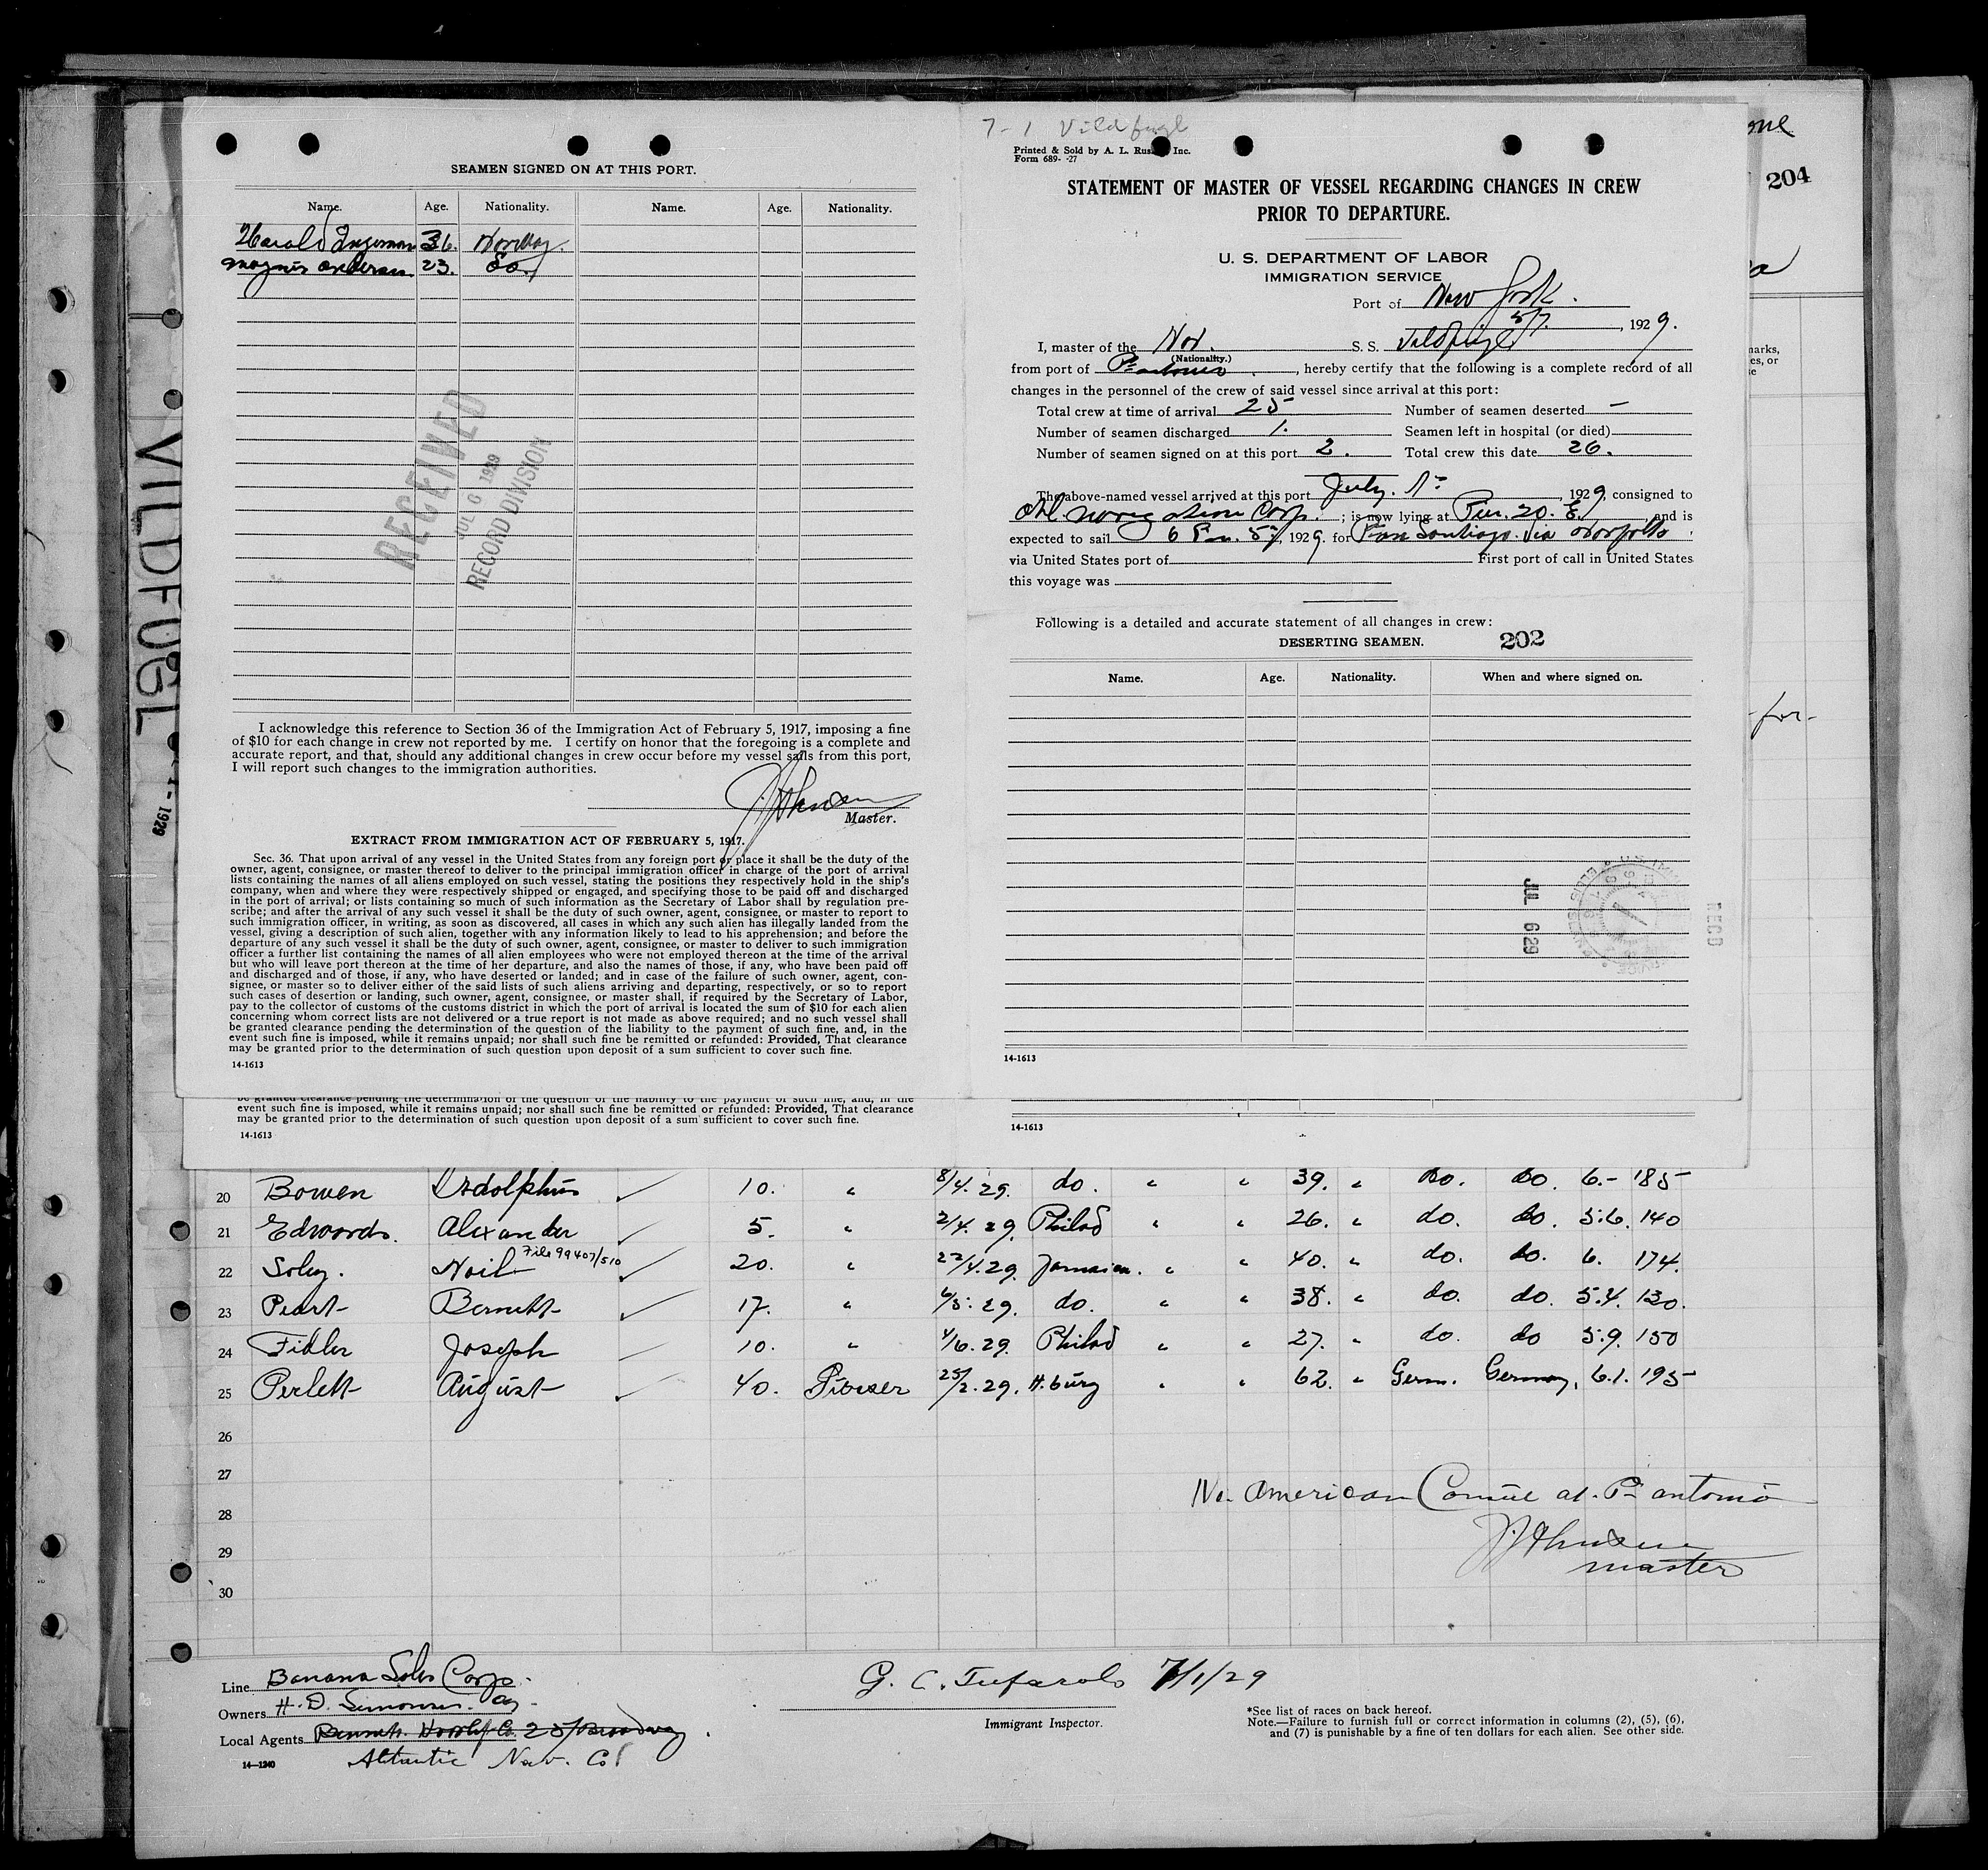 SEAMEN SIGNED ON AT THIS PORT.
Name. Age. Nationality. Name. Age. Nationality.
Harald 36. Norway.
Magnus 23. Do.
RECEIVED
JUL 6 1929
RECORD DIVISION
I acknowledge this reference to Section 36 of the Immigration Act of February 5, 1917, imposing a fine
of $10 for each change in crew not reported by me. I certify on honor that the foregoing is a complete and
accurate report, and that, should any additional changes in crew occur before my vessel sails from this port,
I will report such changes to the immigration authorities.
Master.
EXTRACT FROM IMMIGRATION ACT OF FEBRUARY 5, 1917.
Sec. 36. That upon arrival of any vessel in the United States from any foreign port or place it shall be the duty of the
owner, agent, consignee, or master thereof to deliver to the principal immigration officer in charge of the port of arrival
lists containing the names of all aliens employed on such vessel, stating the positions they respectively hold in the ship's
company, when and where they were respectively shipped or engaged, and specifying those to be paid off and discharged
in the port of arrival; or lists containing so much of such information as the Secretary of Labor shall by regulation pre-
scribe; and after the arrival of any such vessel it shall be the duty of such owner, agent, consignee, or master to report to
such immigration officer, in writing, as soon as discovered, all cases in which any such alien has illegally landed from the
vessel, giving a description of such alien, together with any information likely to lead to his apprehension; and before the
departure of any such vessel it shall be the duty of such owner, agent, consignee, or master to deliver to such immigration
officer a further list containing the names of all alien employees who were not employed thereon at the time of the arrival
but who will leave port thereon at the time of her departure, and also the names of those, if any, who have been paid off
and discharged and of those, if any, who have deserted or landed; and in case of the failure of such owner, agent, con-
signee, or master so to deliver either of the said lists of such aliens arriving and departing, respectively, or so to report
such cases of desertion or landing, such owner, agent, consignee, or master shall, if required by the Secretary of Labor,
pay to the collector of customs of the customs district in which the port of arrival is located the sum of $10 for each alien
concerning whom correct lists are not delivered or a true report is not made as above required; and no such vessel shall
be granted clearance pending the determination of the question of the liability to the payment of such fine, and, in the
event such fine is imposed, while it remains unpaid; nor shall such fine be remitted or refunded: Provided, That clearance
may be granted prior to the determination of such question upon deposit of a sum sufficient to cover such fine.
14-1613
7-1 Vildfugl
Printed & Sold by A. L. Inc.
Form 689- -27
STATEMENT OF MASTER OF VESSEL REGARDING CHANGES IN CREW
PRIOR TO DEPARTURE.
U. S. DEPARTMENT OF LABOR
IMMIGRATION SERVICE
Port of New York.
5/7. , 1929.
I, master of the Nor. S. S. Vildfugl
(Nationality.)
from port of Pt antonio , hereby certify that the following is a complete record of all
changes in the personnel of the crew of said vessel since arrival at this port:
Total crew at time of arrival 25 Number of seamen deserted —
Number of seamen discharged 1. Seamen left in hospital (or died)
Number of seamen signed on at this port 2. Total crew this date 26.
The above-named vessel arrived at this port July. 1st , 1929, consigned to
Atl. navigation Corp. ; is now lying at Pier. 20. E. , and is
expected to sail 6 Pm. 5/7, 1929. for Santiago. via Norfolk
via United States port of First port of call in United States
this voyage was
Following is a detailed and accurate statement of all changes in crew:
DESERTING SEAMEN. 202
Name. Age. Nationality. When and where signed on.
JUL 6 29
RECD
14-1613
204
VILDFUGL
1929
marks,
es, or
-for-
be granted clearance pending the determination of the question of the liability to the payment of such fine, and, in the
event such fine is imposed, while it remains unpaid; nor shall such fine be remitted or refunded: Provided, That clearance
may be granted prior to the determination of such question upon deposit of a sum sufficient to cover such fine.
14-1613
14-1613
20 Bowen Adolphus ✓ 10. " 8/4. 29. do. " " 39. " do. do. 6.- 185
21 Edwards. Alexander ✓ 5. " 2/4. 29. Philad " " 26. " do. do. 5.6. 140
22 Soley. Neil File 99407/510 ✓ 20. " 22/4.29. Jamaica. " " 40. " do. do. 6. 174.
23 Peart Barnett ✓ 17. " 6/5. 29. do. " " 38. " do. do. 5.4. 130.
24 Fidler Joseph ✓ 10. " 4/6. 29. Philad " " 27. " do. do 5.9. 150
25 Perlett August ✓ 40. 25/2. 29. H.burg " " 62. " Germ. Germany. 6.1. 195
26
27
28
29
30
No. American Consul at. Pt antonio
master
Line Banana Sales Corp.
Owners H. D. Simonsen.
Local Agents 25 Broadway
Atlantic Nav. Co
14—1240
G. C. Tufarolo 7/1/29
Immigrant Inspector.
*See list of races on back hereof.
Note.—Failure to furnish full or correct information in columns (2), (5), (6),
and (7) is punishable by a fine of ten dollars for each alien. See other side.